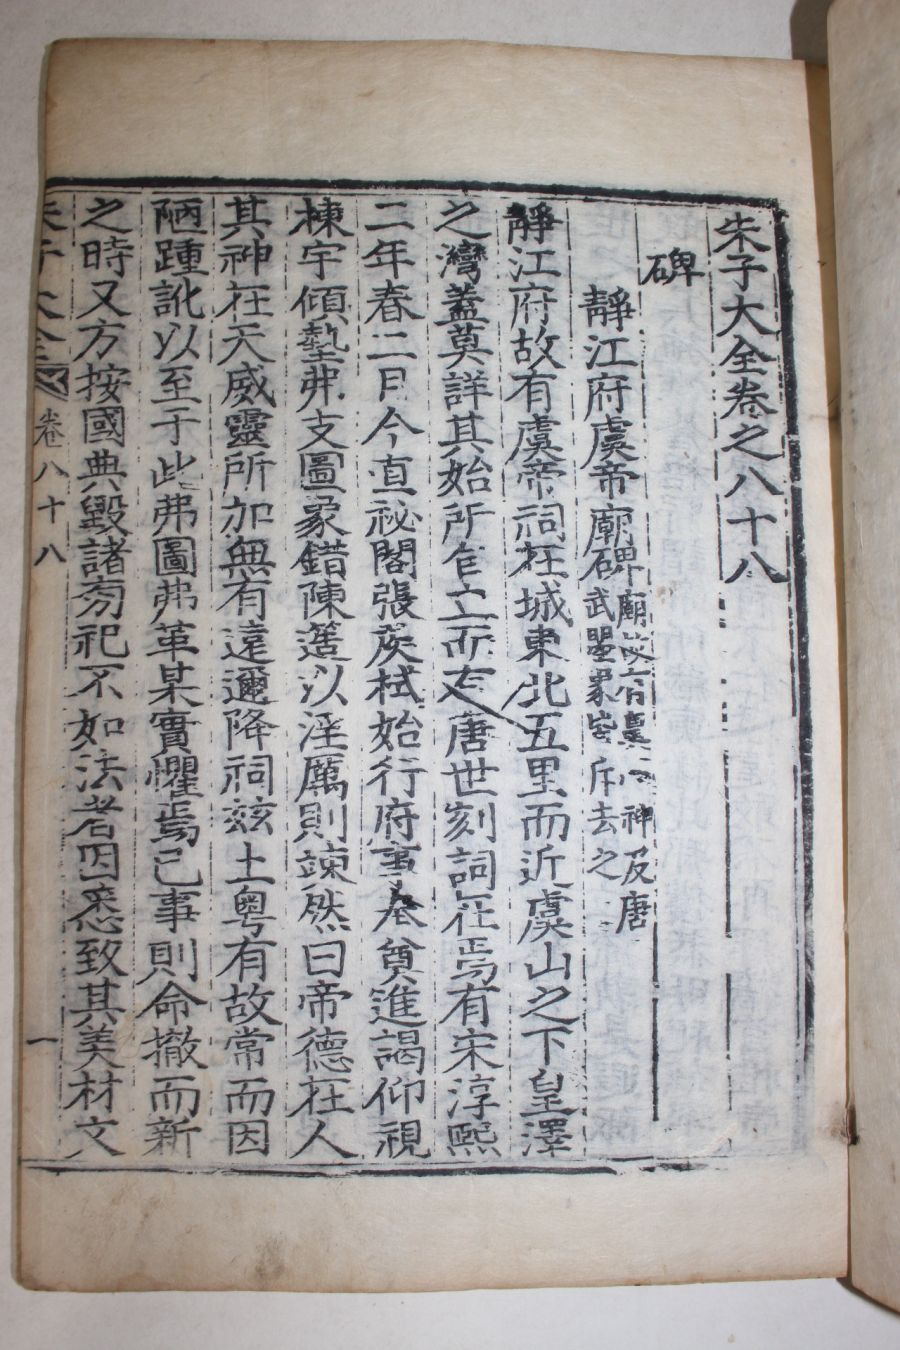 朱子大全卷之八十八
碑
靜江府虞帝廟碑
廟
神及唐
武曌象皆斥去之
靜江府故有虞帝祠在城東北五里而近虞山之下皇澤
之灣蓋莫詳其始所作立而有唐世刻詞在焉有宋淳熙
二年春二月今直祕閣張侯栻始行府事奉奠進謁仰視
棟宇傾墊弗支圖象錯陳簉以淫厲則竦然曰帝德在人
其神在天威靈所加無有遠邇降祠玆土粵有故常而因
陋踵訛以至于此弗圖弗革某實懼焉已事則命撤而新
之時又方按國典毀諸夯祀不如法者因悉致其美材文
朱子大全 卷八十八 一